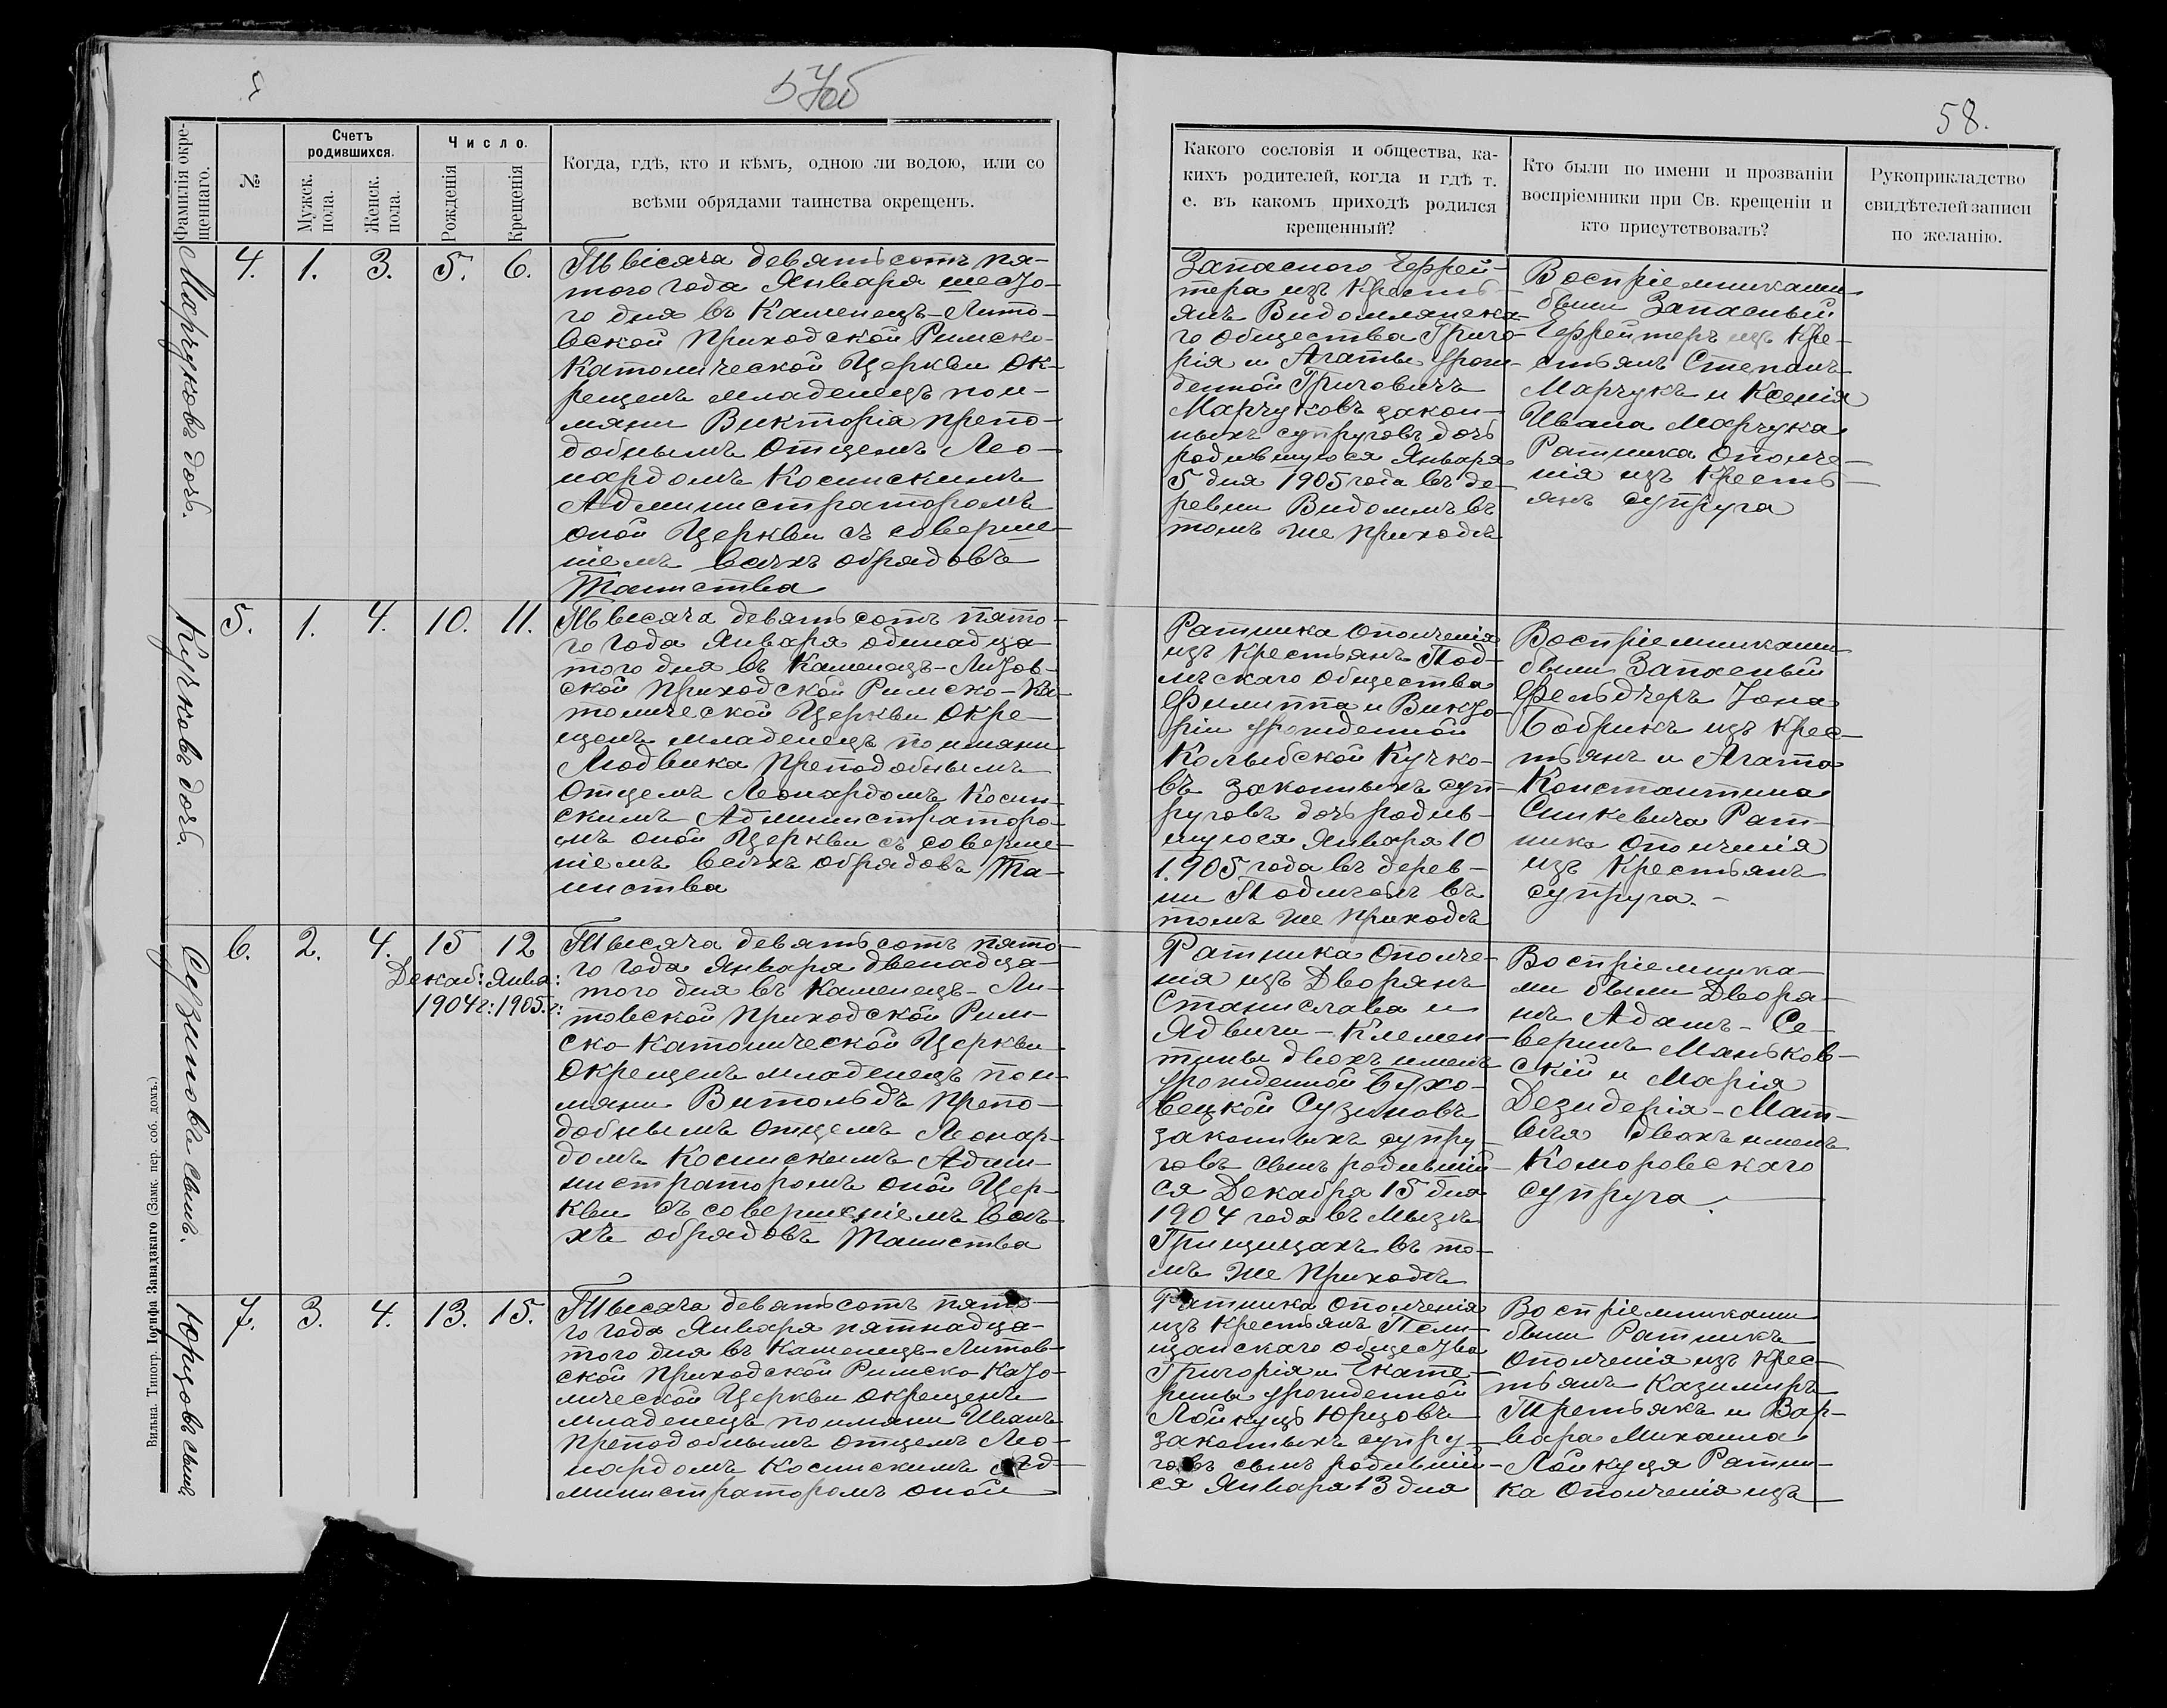 57об
58.
Фамилія окре-
щеннаго.
№
Счетъ
родившихся.
Мужск.
пола.
Женск.
пола.
Число.
Рожденія
Крещенія
Когда, гдѣ, кто и кѣмъ, одною ли водою, или со
всѣми обрядами таинства окрещенъ.
Какого сословія и общества, ка-
кихъ родителей, когда и гдѣ т.
е. въ какомъ приходѣ родился
крещенный?
Кто были по имени и прозванію
воспріемники при Св. крещеніи и
кто присутствовалъ?
Рукоприкладство
свидѣтелей записи
по желанію.
Марчуковъ дочь.
4. 1. 3. 5. 6.
Тысяча девятьсотъ пя-
того года Января шесто-
го дня въ Каменецъ-Лито-
вской Приходской Римско-
Католической Церкви Ок-
рещенъ младенецъ по и-
мяни Викторіа Препо-
добнымъ Отцемъ Лео-
нардомъ Косинскимъ
Администраторомъ
оной Церкви съ соверше-
ніемъ всѣхъ обрядовъ
Таинства
Запаснаго Ефрей-
тера изъ Кресть-
янъ Видомлянска-
го общества Григо-
рія и Агаты урож-
денной Григовичъ
Марчуковъ закон-
ныхъ супруговъ дочь
родившуюся Января
5 дня 1905 года въ де-
ревни Видомлѣ въ
томъ же приходѣ
Воспріемниками
были Запасный
Ефрейтеръ изъ Кре-
стьянъ Степанъ
Марчукъ и Ксенія
Ивана Марчука
Ратника Ополче-
нія изъ Кресть-
янъ супруга
Кучковъ дочь.
5. 1. 4. 10. 11.
Тысяча девятьсотъ пято-
го года Января одинадца-
того дня въ Каменецъ-Литов-
ской Приходской Римско-Ка-
толической Церкви Окре-
щенъ младенецъ по имяни
Людвика Преподобнымъ
Отцемъ Леонардомъ Косин-
скимъ Администраторо-
мъ оной Церкви съ соверше-
ніемъ всѣхъ обрядовъ Та-
инства
Ратника Ополченія
изъ Крестьянъ Под-
лѣскаго общества
Филиппа и Викто-
ріи урожденной
Колыбской Кучко-
въ законныхъ суп-
руговъ дочь родив-
шуюся Января 10
1905 года въ дерев-
ни въ
томъ же Приходѣ
Воспріемниками
были Запасный
Фельдчеръ Іона
Бобрикъ изъ Крес-
тьянъ и Агата
Константина
Синкевича Рат-
ника Ополченія
изъ Крестьянъ
супруга.-
Сузиновъ сынъ.
6. 2. 4. 15 12
Декаб: Янва:
1904 г: 1905 г:
Тысяча девятьсотъ пято-
го года Января двенадца-
того дня въ Каменецъ-Ли-
товской Приходской Рим-
ско-Католической Церкви
Окрещенъ младенецъ по и-
мяни Витольдъ Препо-
добнымъ Отцемъ Леонар-
домъ Косинскимъ Адми-
нистраторомъ оной Цер-
кви съ совершеніемъ всѣ-
хъ обрядовъ Таинства
Ратника Ополче-
нія изъ Дворянъ
Станислава и
Ядвиги-Клемен-
тины двохъ именъ
урожденной Бухо-
вецкой Сузиновъ
законныхъ супру-
говъ сынъ родившій-
ся Декабря 15 дня
1904 года въ Мызѣ
въ то-
мъ же Приходѣ
Воспріемника-
ми были Дворя-
нъ Адамъ-Се-
веринъ Маньков-
скій и Марія
Дезидерія-Мат-
вѣя двохъ именъ
Коморовскаго
супруга.
Юрцовъ сынъ
7. 3. 4. 13. 15.
Тысяча девятьсотъ пято-
го года Января пятнадца-
того дня въ Каменецъ-Литов-
ской Приходской Римско-Като-
лической Церкви окрещенъ
младенецъ по имяни Иванъ
Преподобнымъ отцемъ Лео-
нардомъ Косинскимъ Ад-
министраторомъ оной
Ратника Ополченія
изъ Крестьянъ Пели-
щанскаго общества
Григорія и Екате-
рины урожденной
Лойкуць Юрцовъ
законныхъ супру-
говъ сынъ родившій-
ся Января 13 дня
Воспріемниками
были Ратникъ
Ополченія изъ Крес-
тьянъ Казимиръ
Третьякъ и Вар-
вара Михаила
Лойкуця Ратни-
ка Ополченія изъ
Вильна. Типогр. Іосифа Завадзкаго (Замк. пер. соб. домъ.)